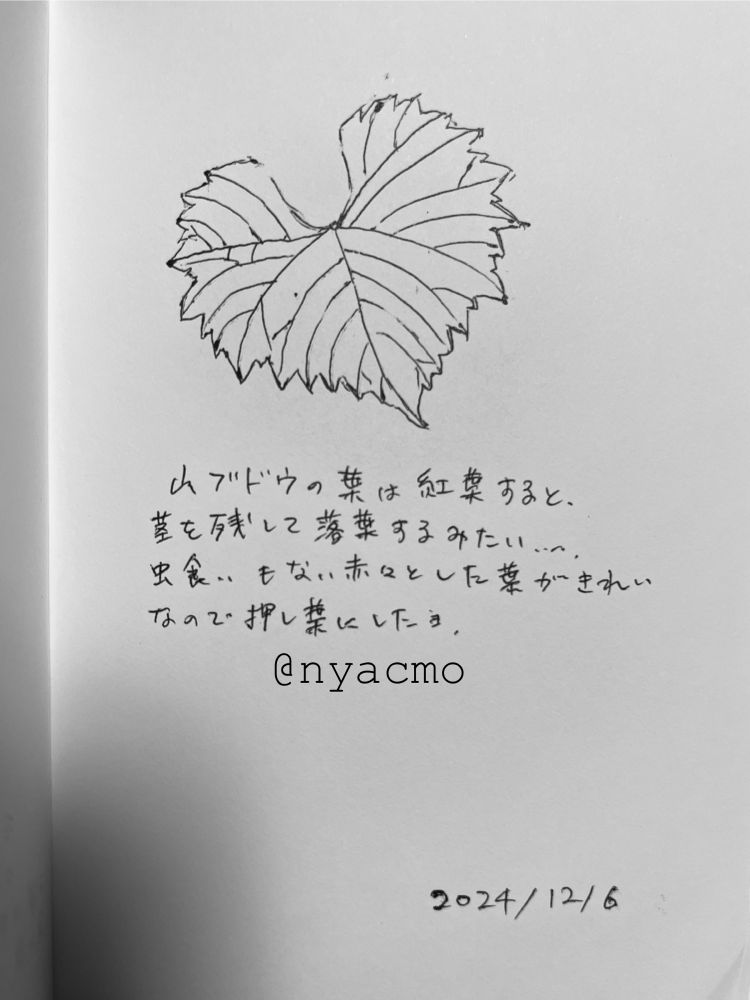 山ブドウの葉は紅葉すると、
茎を残して落葉するみたい…。
虫食いもない赤々とした葉がきれい
なので押し葉にしたよ。
@nyacmo
2024/12/6